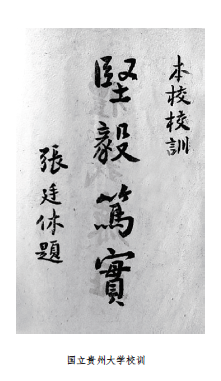 本校校訓
堅毅篤實
張廷休題
国立贵州大学校训